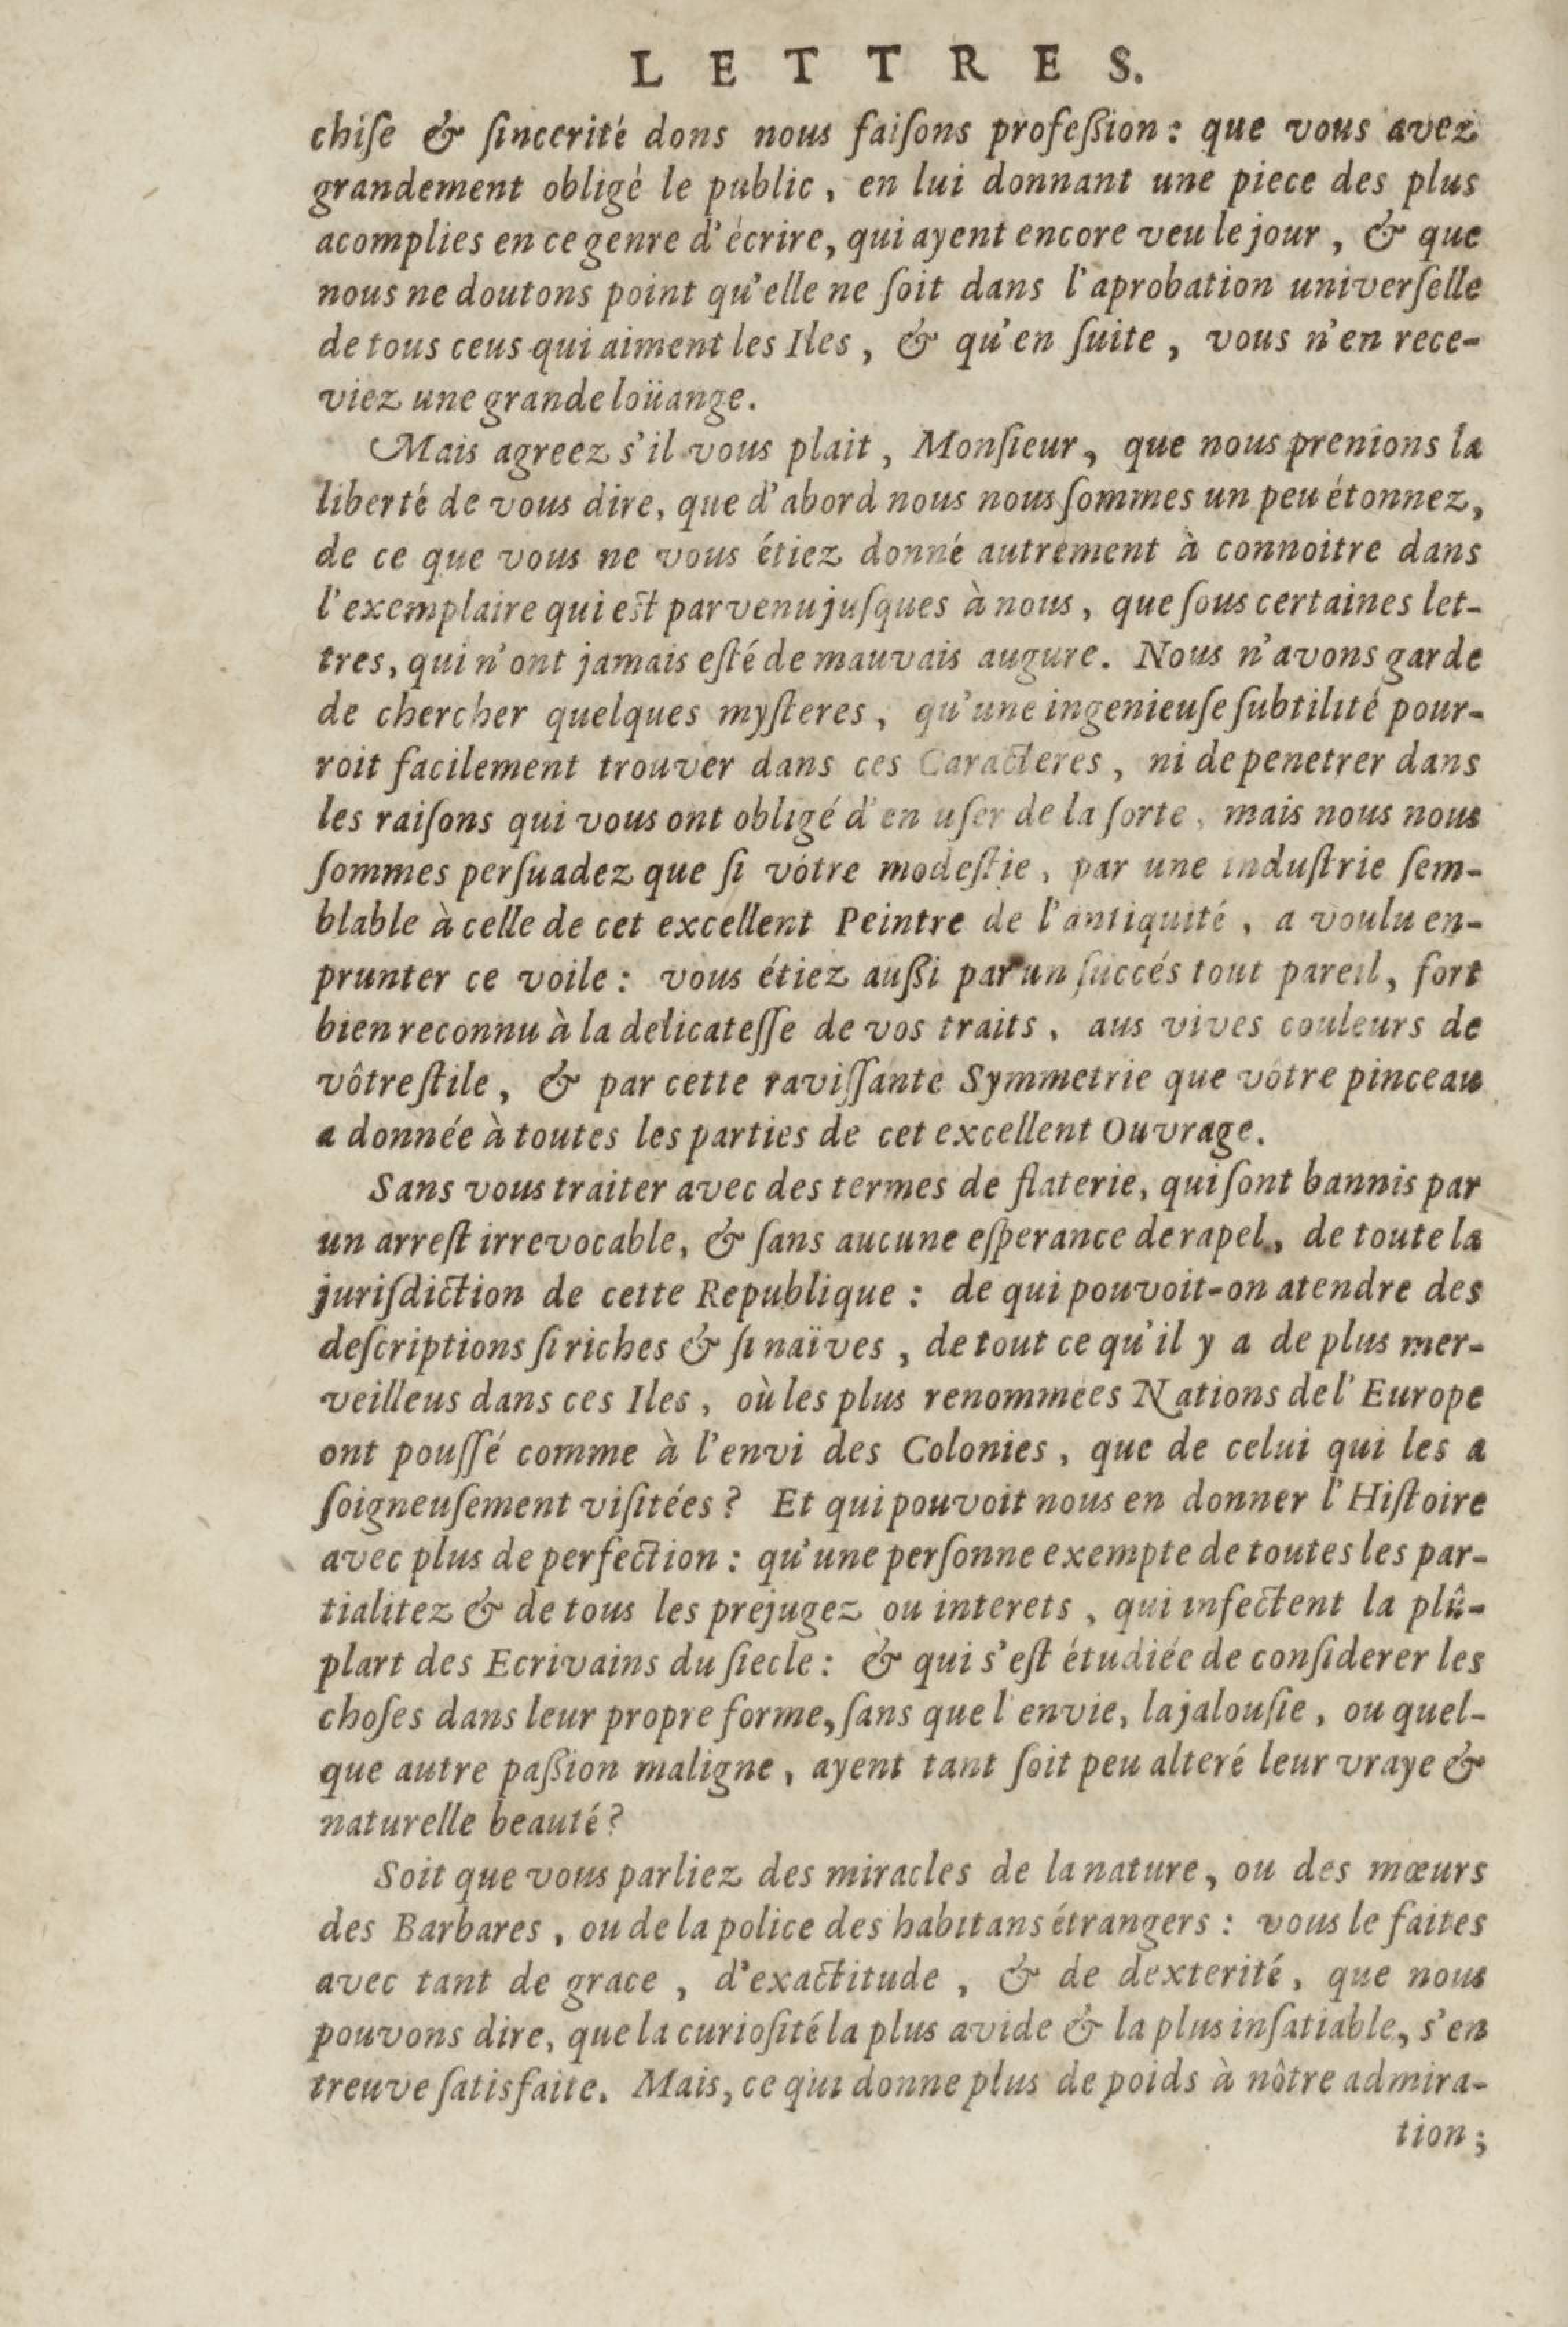 LETTRES.
chiſe & ſincerité dons nous faiſons profeßion : que vous avez
grandement obligé le public, en lui donnant une piece des plus
acomplies en ce genre d'écrire, qui ayent encore veu le jour, & que
nous ne doutons point qu'elle ne ſoit dans l'aprobation univerſelle
de tous ceus qui aiment les Iles, & qu'en ſuite, vous n'en rece-
viez une grande loüange.
Mais agreez s'il vous plait, Monſieur, que nous prenions la
liberté de vous dire, que d'abord nous nous ſommes un peu étonnez,
de ce que vous ne vous étiez donné autrement à connoitre dans
l'exemplaire qui est parvenu juſques à nous, que ſous certaines let-
tres, qui n'ont jamais eſté de mauvais augure. Nous n'avons garde
de chercher quelques myſteres, qu'une ingenieuſe ſubtilité pour-
roit facilement trouver dans ces Caracteres, ni de penetrer dans
les raiſons qui vous ont obligé d'en uſer de la ſorte, mais nous nous
ſommes perſuadez que ſi vôtre modeſtie, par une induſtrie ſem-
blable à celle de cet excellent Peintre de l'antiquité, a voulu en-
prunter ce voile : vous étiez außi par un ſuccés tout pareil, fort
bien reconnu à la delicateſſe de vos traits, aus vives couleurs de
vôtre ſtile, & par cette raviſſante Symmetrie que vôtre pinceau
a donnée à toutes les parties de cet excellent Ouvrage.
Sans vous traiter avec des termes de flaterie, qui ſont bannis par
un arreſt irrevocable, & ſans aucune eſperance de rapel, de toute la
juriſdiction de cette Republique : de qui pouvoit-on atendre des
deſcriptions ſi riches & ſi naïves, de tout ce qu'il y a de plus mer-
veilleus dans ces Iles, où les plus renommees Nations de l'Europe
ont pouſſé comme à l'envi des Colonies, que de celui qui les a
ſoigneuſement viſitées ? Et qui pouvoit nous en donner l'Hiſtoire
avec plus de perfection : qu'une perſonne exempte de toutes les par-
tialitez & de tous les prejugez ou interets, qui infectent la plû-
plart des Ecrivains du ſiecle : & qui s'eſt étudiée de conſiderer les
choſes dans leur propre forme, ſans que l'envie, la jalouſie, ou quel-
que autre paßion maligne, ayent tant ſoit peu alteré leur vraye &
naturelle beauté ?
Soit que vous parliez des miracles de la nature, ou des mœurs
des Barbares, ou de la police des habitans étrangers : vous le faites
avec tant de grace, d'exactitude, & de dexterité, que nous
pouvons dire, que la curioſité la plus avide & la plus inſatiable, s'en
treuve ſatisfaite. Mais, ce qui donne plus de poids à nôtre admira-
tion ;